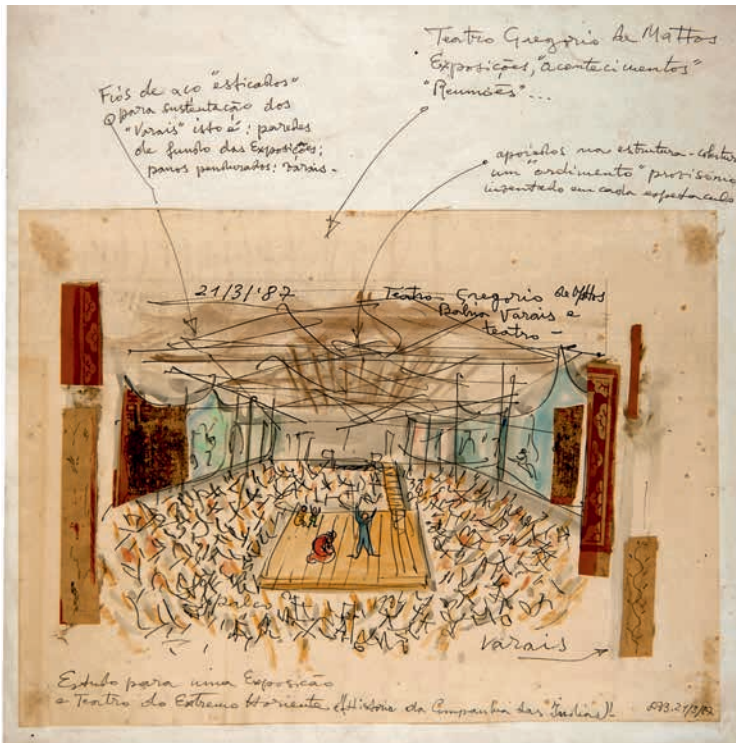 Teatro Gregorio de Mattos
Exposições, "acontecimentos"
"Reuniões"...
Fios de aço "esticados"
para sustentação dos
"Varais" isto é: paredes
de fundo das Exposições;
panos pendurados: varais.
apoiados na estrutura-cobertura
um "ardimento" provisório
inventado em cada espetaculo
21/3/'87
Teatro Gregorio de Mattos
Bahia Varais e
teatro -
palco
varais
Estudo para uma Exposição
e Teatro do Extremo Horiente (História da Companhia das Indias)-
21/3/87